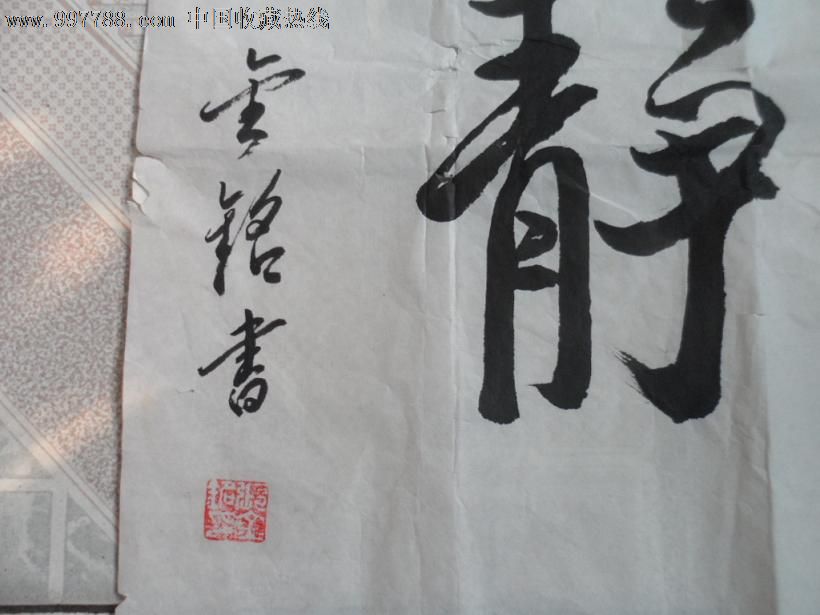 www.997788.com 中国收藏热线
静
金铭書